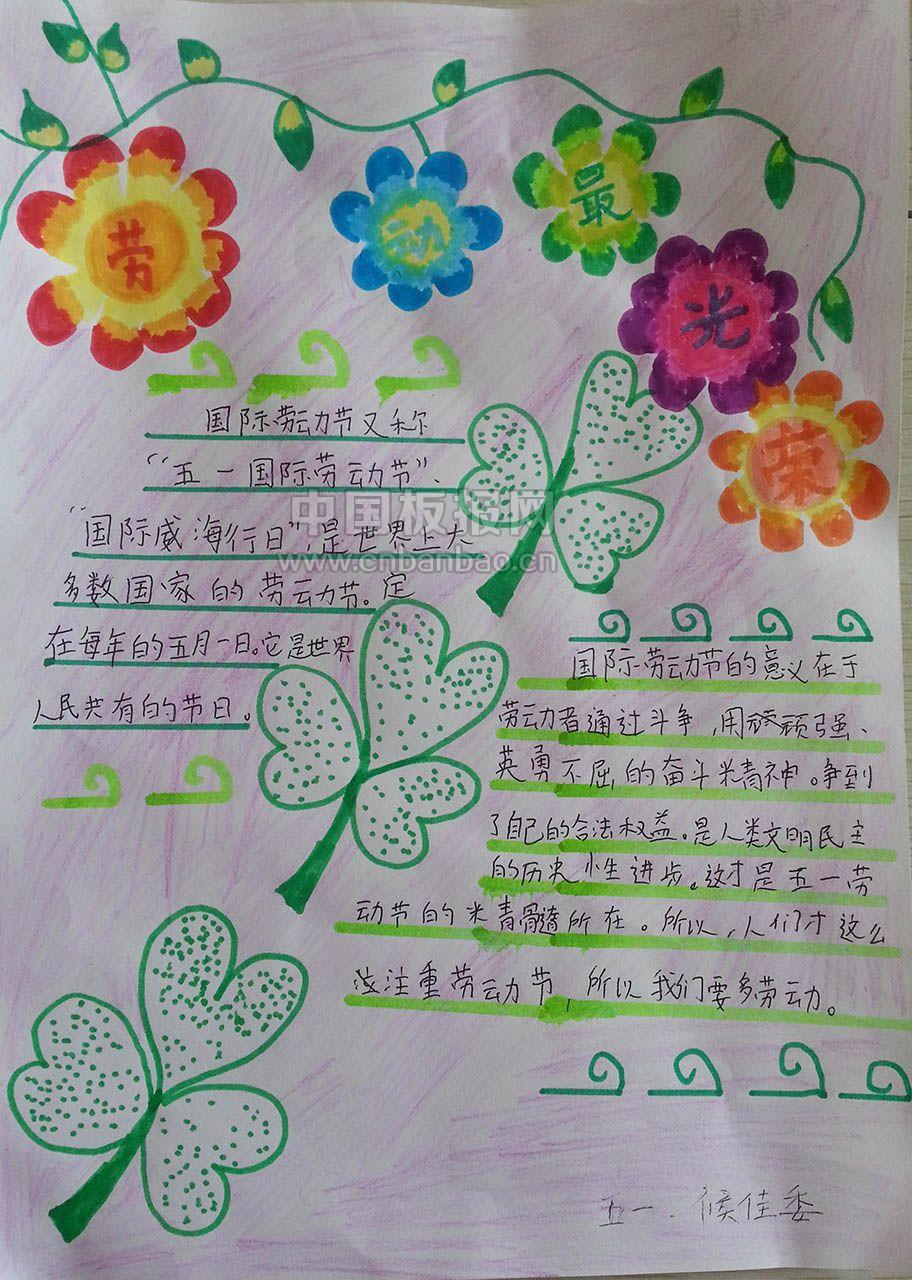 劳动最光荣
国际劳动节又称
“五一国际劳动节”、
“国际威海行日”是世界上大
多数国家的劳动节。定
在每年的五月一日。它是世界
人民共有的节日。
中国板报网
www.cnbanbao.cn
国际劳动节的意义在于
劳动者通过斗争,用顽强、
英勇不屈的奋斗精神。争到
了自己的合法权益。是人类文明民主
的历史性进步。这才是五一劳
动节的精髓所在。所以,人们才这么
注重劳动节,所以我们要多劳动。
五一.侯佳委